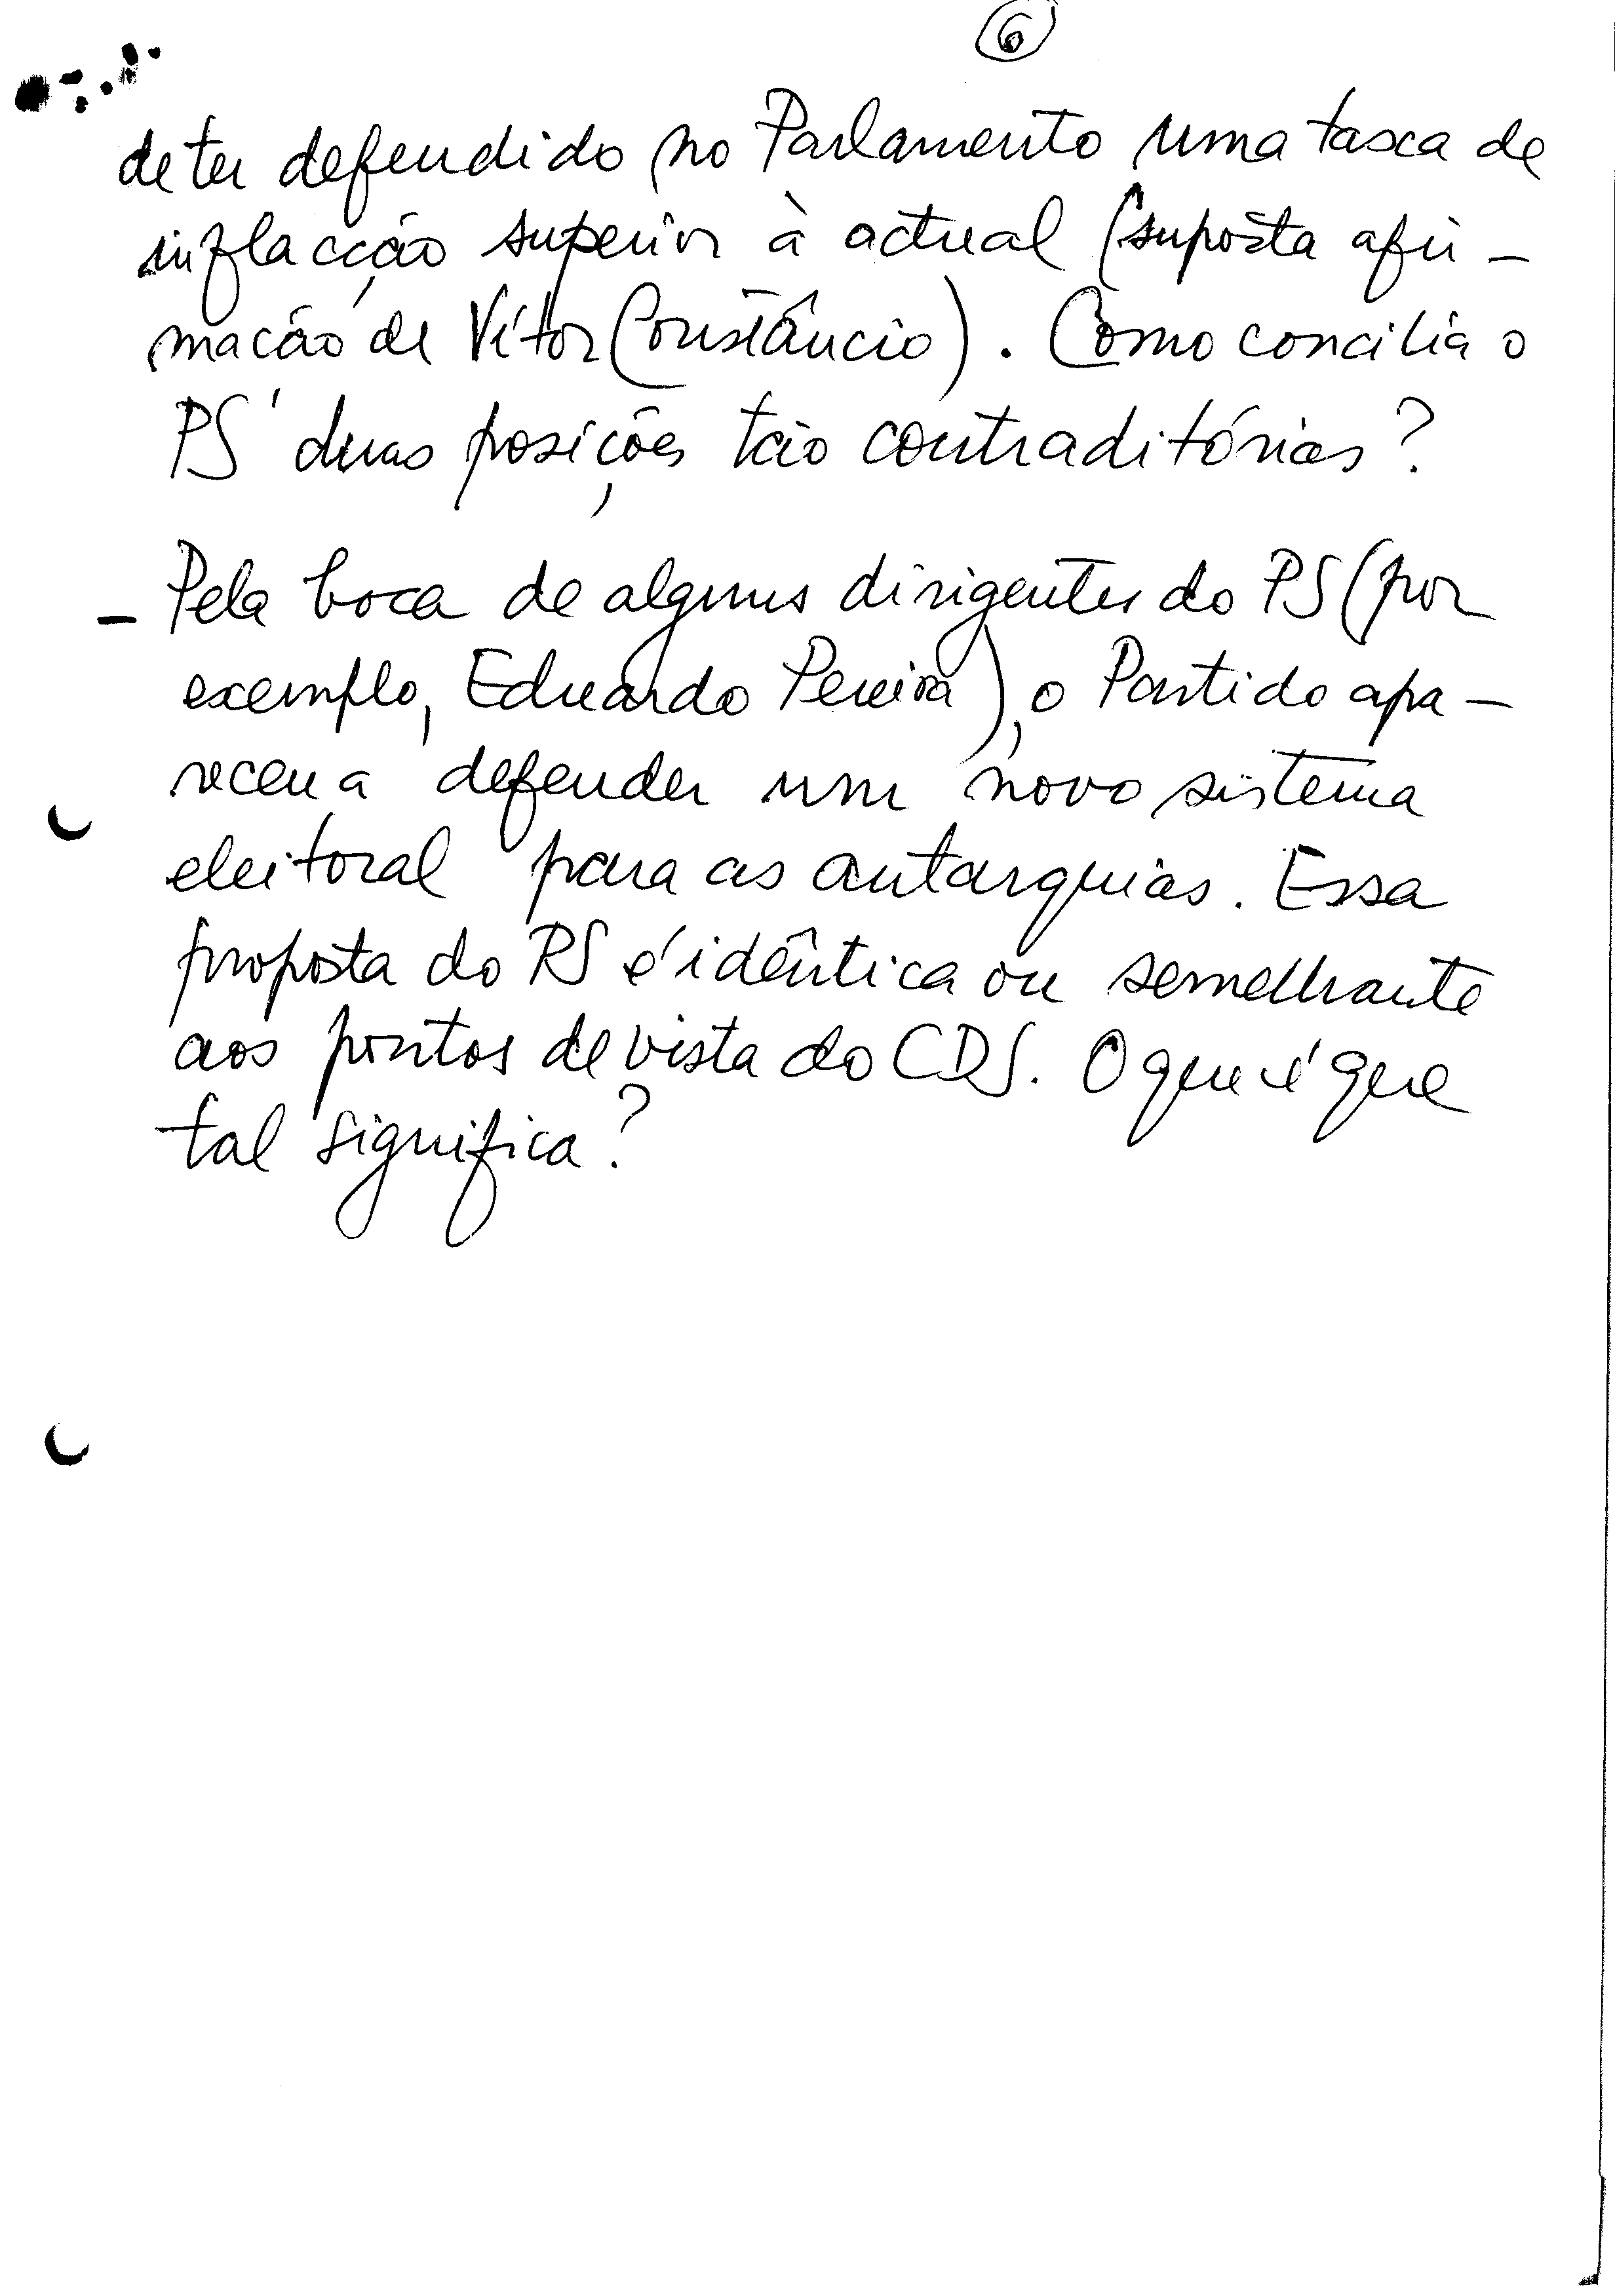 6
de ter defendido no Parlamento uma taxa de
inflacção superior à actual (suposta afir-
mação de Vítor Constâncio). Como concilia o
PS duas posições tão contraditórias?
- Pela boca de alguns dirigentes do PS (por
exemplo, Eduardo Pereira), o Partido apa-
receu a defender um novo sistema
eleitoral para as autarquias. Essa
proposta do PS é idêntica ou semelhante
aos pontos de vista do CDS. O que é que
tal significa?